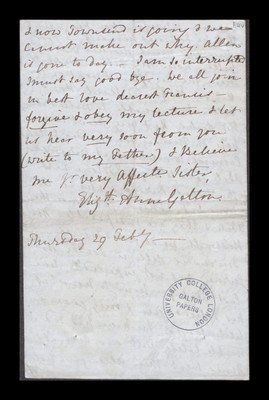 & now Townsend is going & we
cannot make out why Allen
is gone to day. - I am so interrupted
I must say good bye. We all join
in best love dearest Francis -
forgive & obey my lecture & let
us hear very soon from you
(write to my Father) & Believe
me yr very Affecte Sister,
Elizth Anne Galton
Thursday 29 Feby
UNIVERSITY COLLEGE LONDON
GALTON
PAPERS